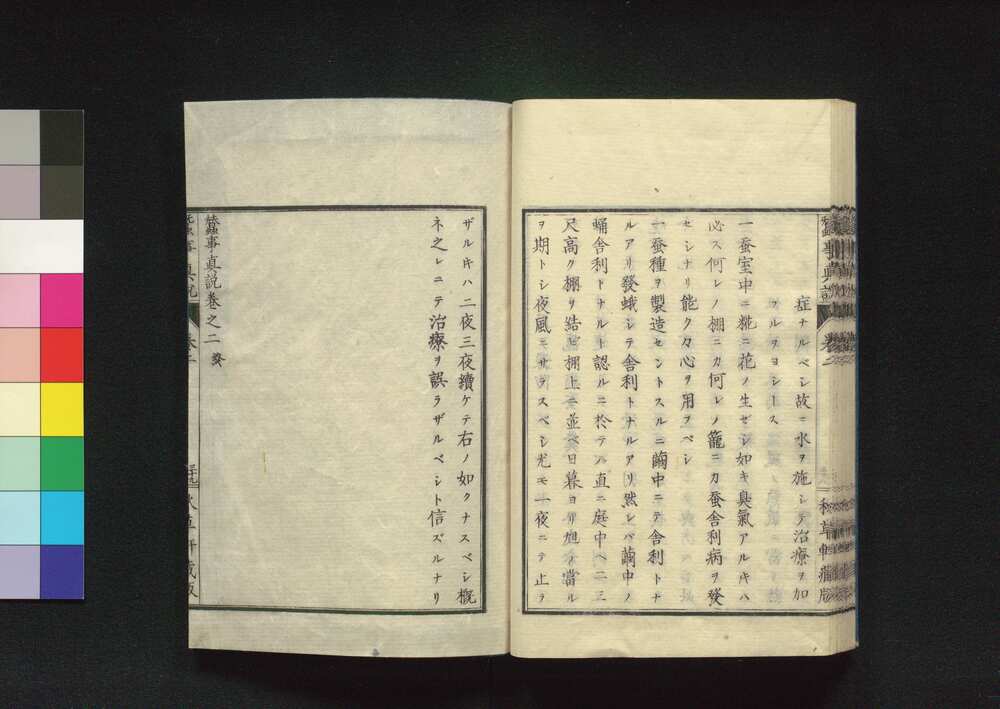 症ナルベシ故ニ水ヲ施シテ治療ヲ加
フルヲヨシトス
一蚕室中ニ糀ニ花ノ生ゼシ如キ臭氣アルキハ
必ス何レノ棚ニカ何レノ籠ニカ蚕舎利病ヲ發
セシナリ能ク々心ヲ用フベシ
一蚕種ヲ製造セントスルニ繭中ニテ舎利トナ
ルアリ發蛾シテ舎利トナルアリ然レバ繭中ノ
蛹舎利トナルト認ルニ於テハ直ニ庭中ヘ二三
尺高ク棚ヲ結ビ棚上ニ並ベ日暮ヨリ旭ノ當ル
ヲ期トシ夜風ニサラスベシ尤モ一夜ニテ止ラ
ザルキハ二夜三夜續ケテ右ノ如クナスベシ概
ネ之レニテ治療ヲ誤ラザルベシト信ズルナリ
蠶事真説巻之二 終